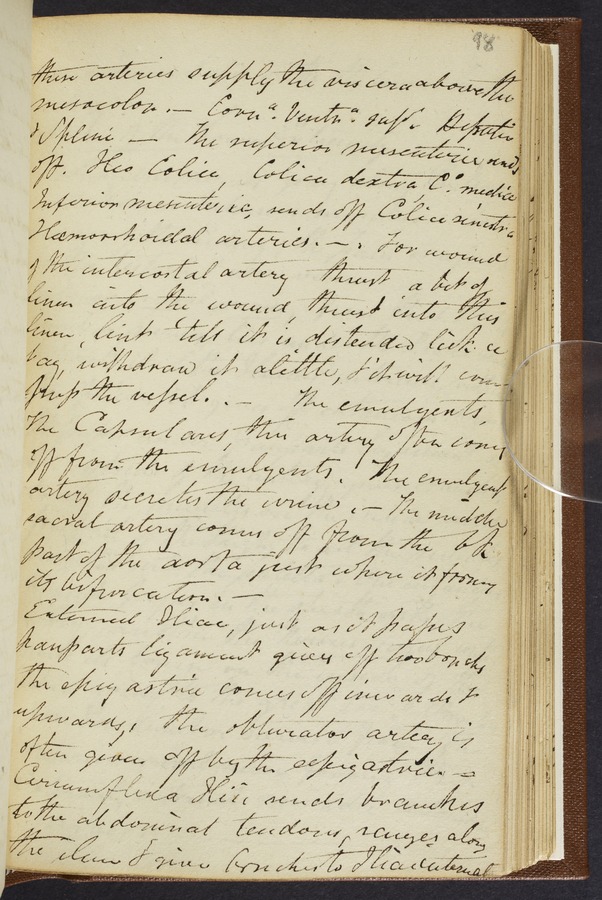 98
these arteries supply the viscera above the
mesocolon. — Coron.a Ventr.a supr. Hepatic
& Splenic — The superior mesenteric sends
off. Ileo Colica, Colica dextra, C.o media
Inferior mesenteric, sends off Colica sinistra
Haemorrhoidal arteries. — . For wound
of the intercostal artery thrust a bit of
linen into the wound, thrust into this
linen, lint till it is distended like a
bag, withdraw it a little, & it will com-
press the vessel. — The emulgents,
The Capsulares, this artery often comes
off from the emulgents. The emulgent
artery secretes the urine. — The middle
sacral artery comes off from the back
part of the aorta just where it forms
its bifurcation. —
External Iliac, just as it passes
pauparts ligament gives off two branches
the epigastric comes off inwards &
upwards, the obturator artery is
often given off by the epigastric. —
Circumflexa Ilii sends branches
to the abdominal tendons, ranges along
the ilium & gives branches to Iliacus internal